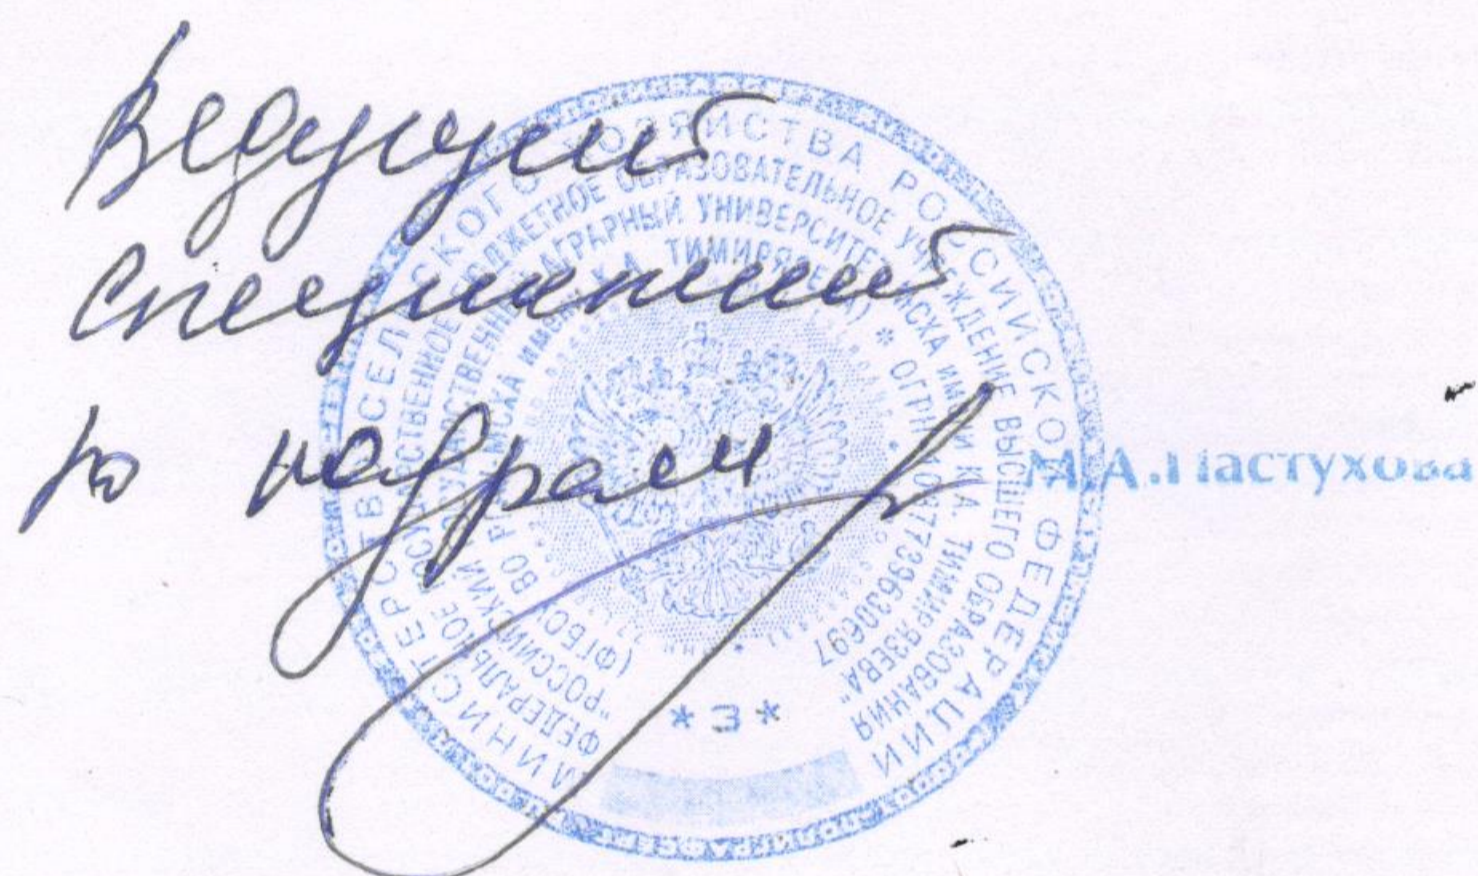 Ведущий
специалист
по кадрам
М.А.Пастухова
МИНИСТЕРСТВО СЕЛЬСКОГО ХОЗЯЙСТВА РОССИЙСКОЙ ФЕДЕРАЦИИ
ФЕДЕРАЛЬНОЕ ГОСУДАРСТВЕННОЕ БЮДЖЕТНОЕ ОБРАЗОВАТЕЛЬНОЕ УЧРЕЖДЕНИЕ ВЫСШЕГО ОБРАЗОВАНИЯ
"РОССИЙСКИЙ ГОСУДАРСТВЕННЫЙ АГРАРНЫЙ УНИВЕРСИТЕТ - МСХА имени К.А. ТИМИРЯЗЕВА"
(ФГБОУ ВО РГАУ - МСХА имени К.А. ТИМИРЯЗЕВА) * ОГРН 1037739630697
* 3 *